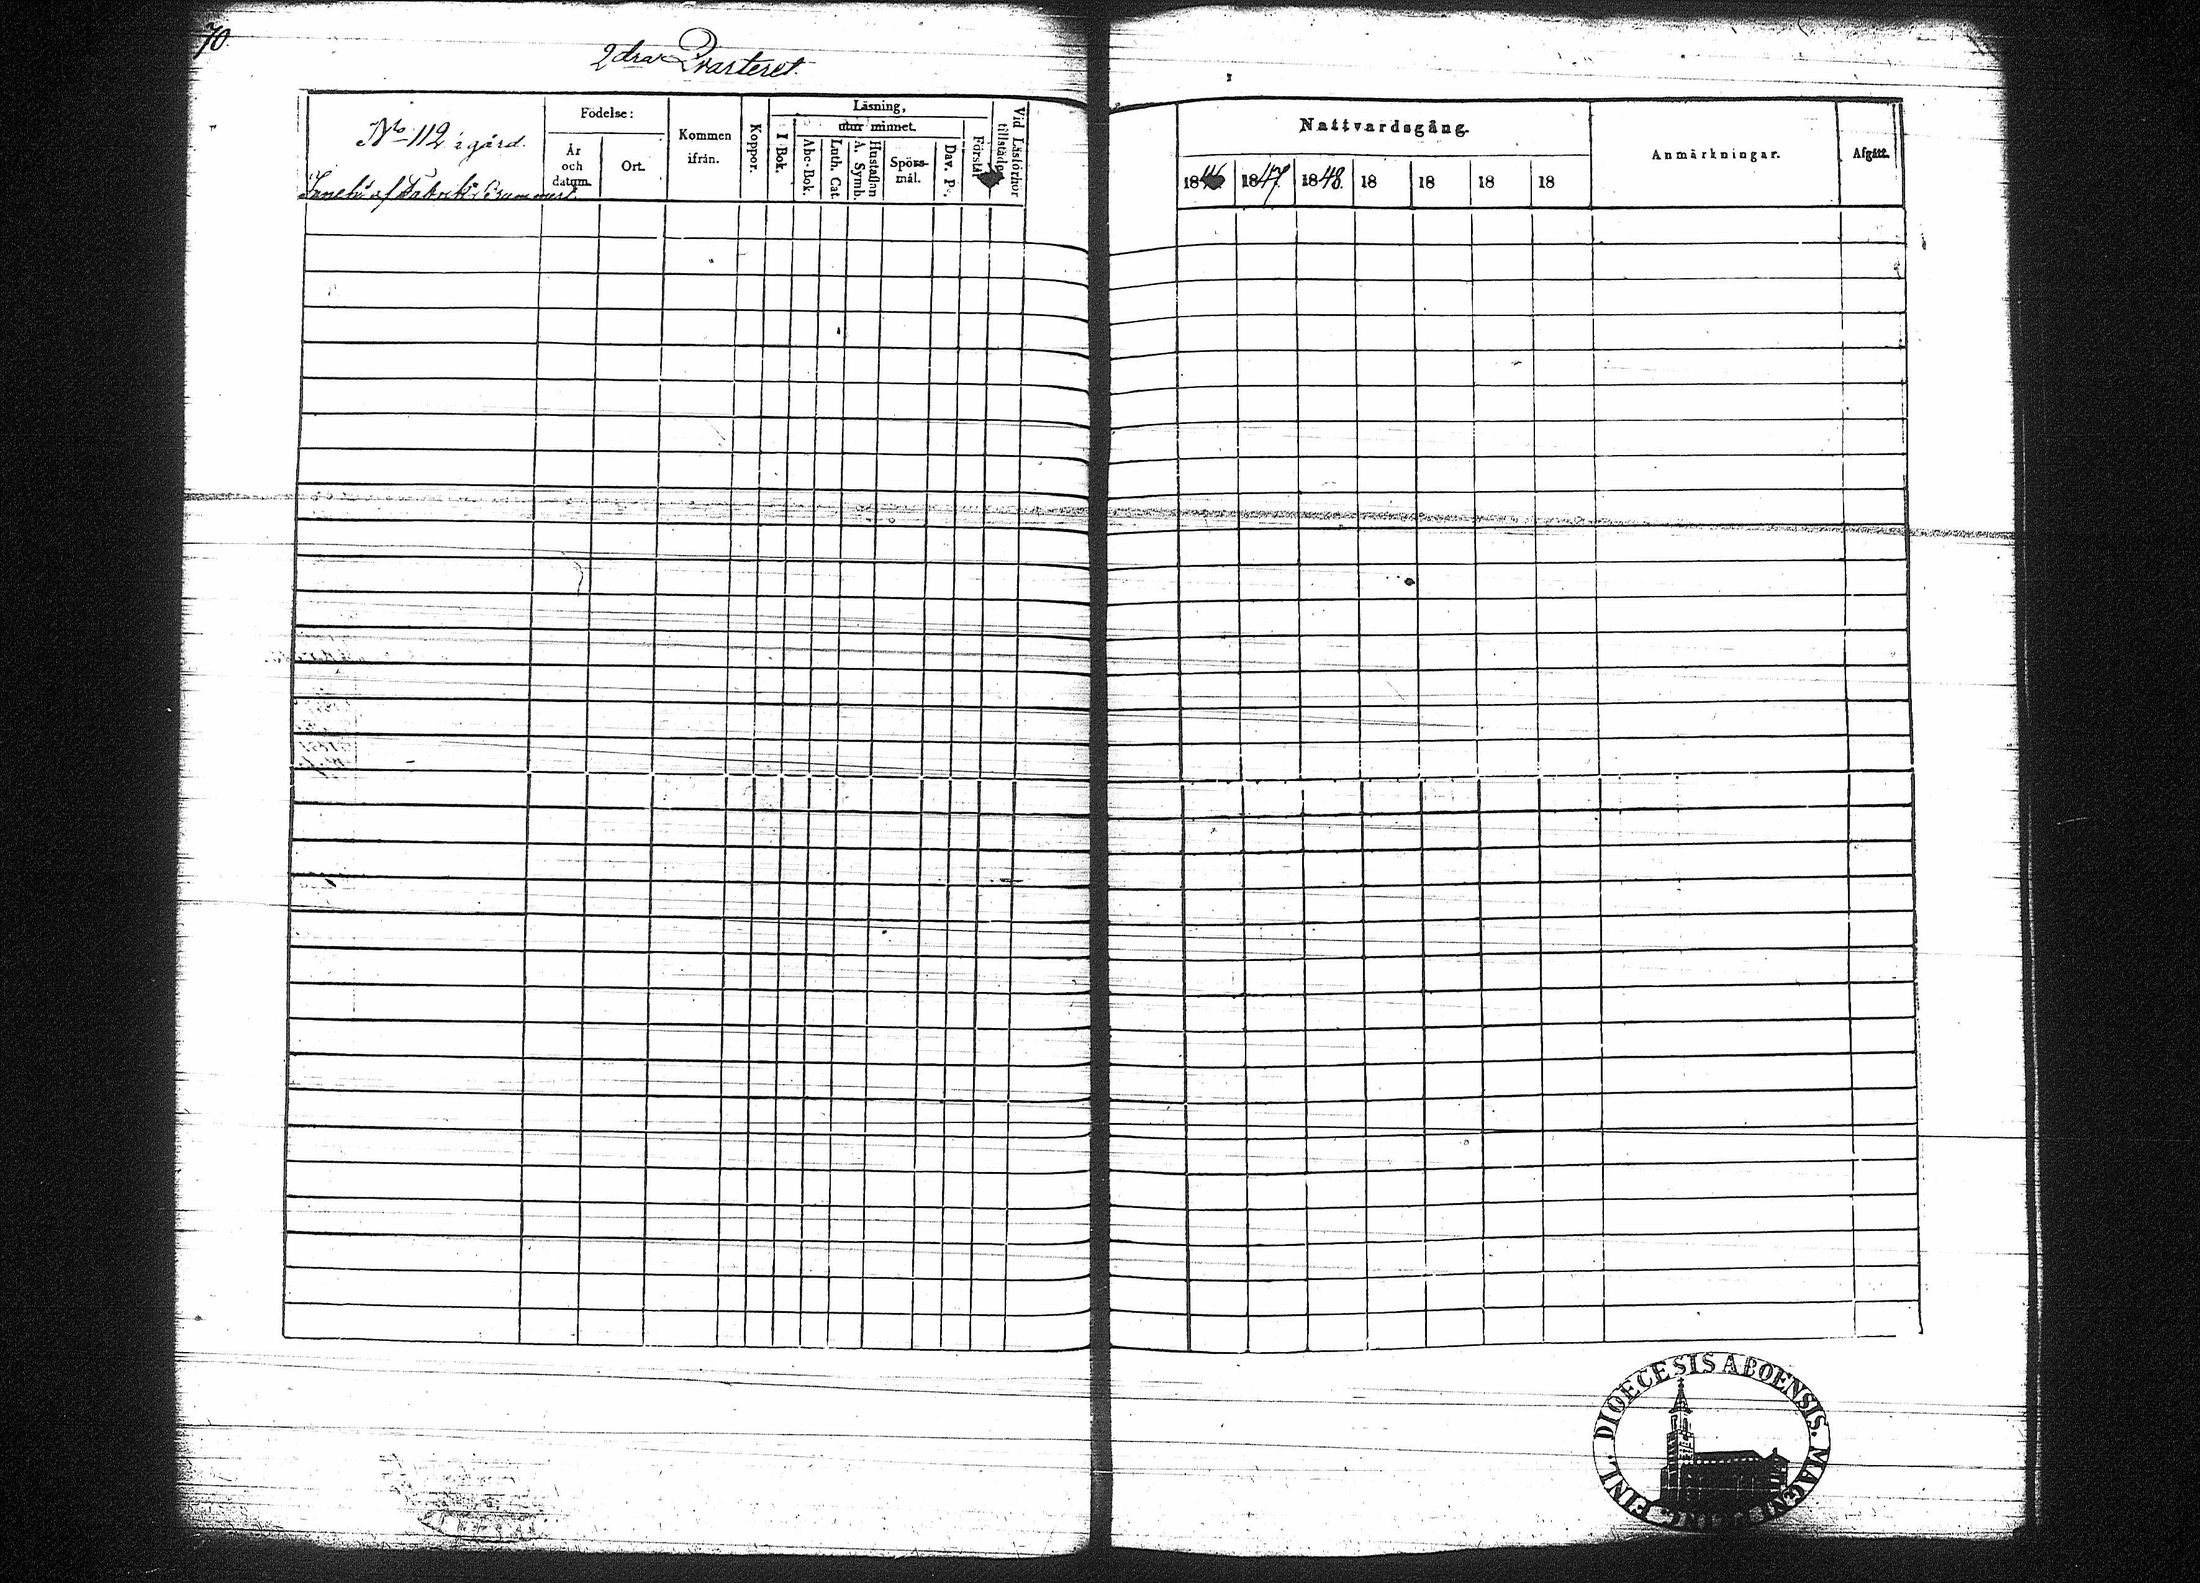 70.
2dra Qvarteret.
No 112 i gård.
af
Födelse:
År
och
datum.
Ort.
Kommen
ifrån.
Koppor.
Läsning,
utur minnet.
I Bok.
Abc-Bok.
Luth. Cat.
Hustaflan
A. Symb.
Spörs-
mål.
Dav. Ps.
Förstår
Vid Läsförhör
tillstädes
Nattvardsgång.
1846 1847. 1848. 18 18 18 18
Anmärkningar.
Afgått.
FINL. DIOECESIS ABOENSIS. MAGNI